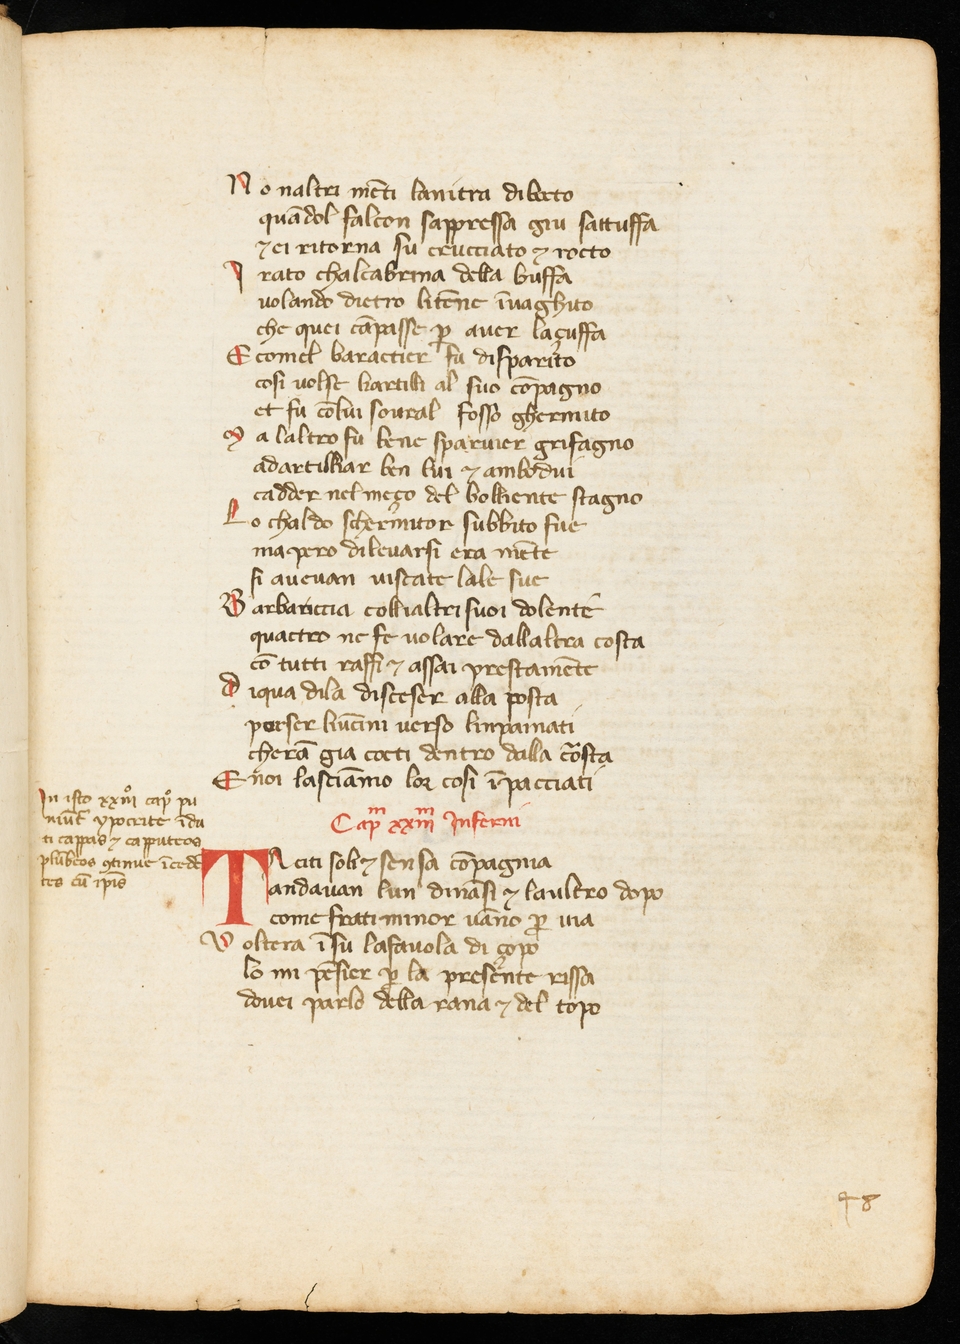 No naltri mēti lanitra dibocto
quādol falcon sappressa giu sattuffa
⁊ ei ritorna su crucciato ⁊ rocto
Irato chalcabrina della buffa
volando dietro litēne īvaghito
che quei cāpasse p̲ aver laçuffa
E comel baractier fu disparito
cosi volse liartilli al suo cōpagno
et fu cōlui sovral fosso ghermito
Ma laltro fu bene sparvier grifagno
adartilliar ben lui ⁊ ambēdui
cadder nel meço del bolliente stagno
Lo chaldo schermitor subbito fue
ma pero dilevarsi era niēte
si avevan viscate lale sue
Barbariccia collialtri suoi dolente
quactro ne fe volare dallaltra costa
cō tutti raffi ⁊ assai prestamēte
Di qua di la disceser alla posta
porser liūcini verso linpaniati
cherā gia cocti dentro dalla crosta
E noi lasciāmo lor cosi īpacciati
In isto xxiij cap̄ pu
niūt ypocrite īdu
ti cappas ⁊ capputeos
plūbeos ꝯtinue īcedē
tes cū ip̄is
Cap̄m xxiijm Inferni
Taciti soli ⁊ sensa cōpagnia
andavan lun dināsi ⁊ laultro dopo
come frati minor vāno p̲ via
Volterа ī su lafavola di ҫopo
lo mi pēsier p̲ la presente rissa
dovei parlo della rana ⁊ del topo
48